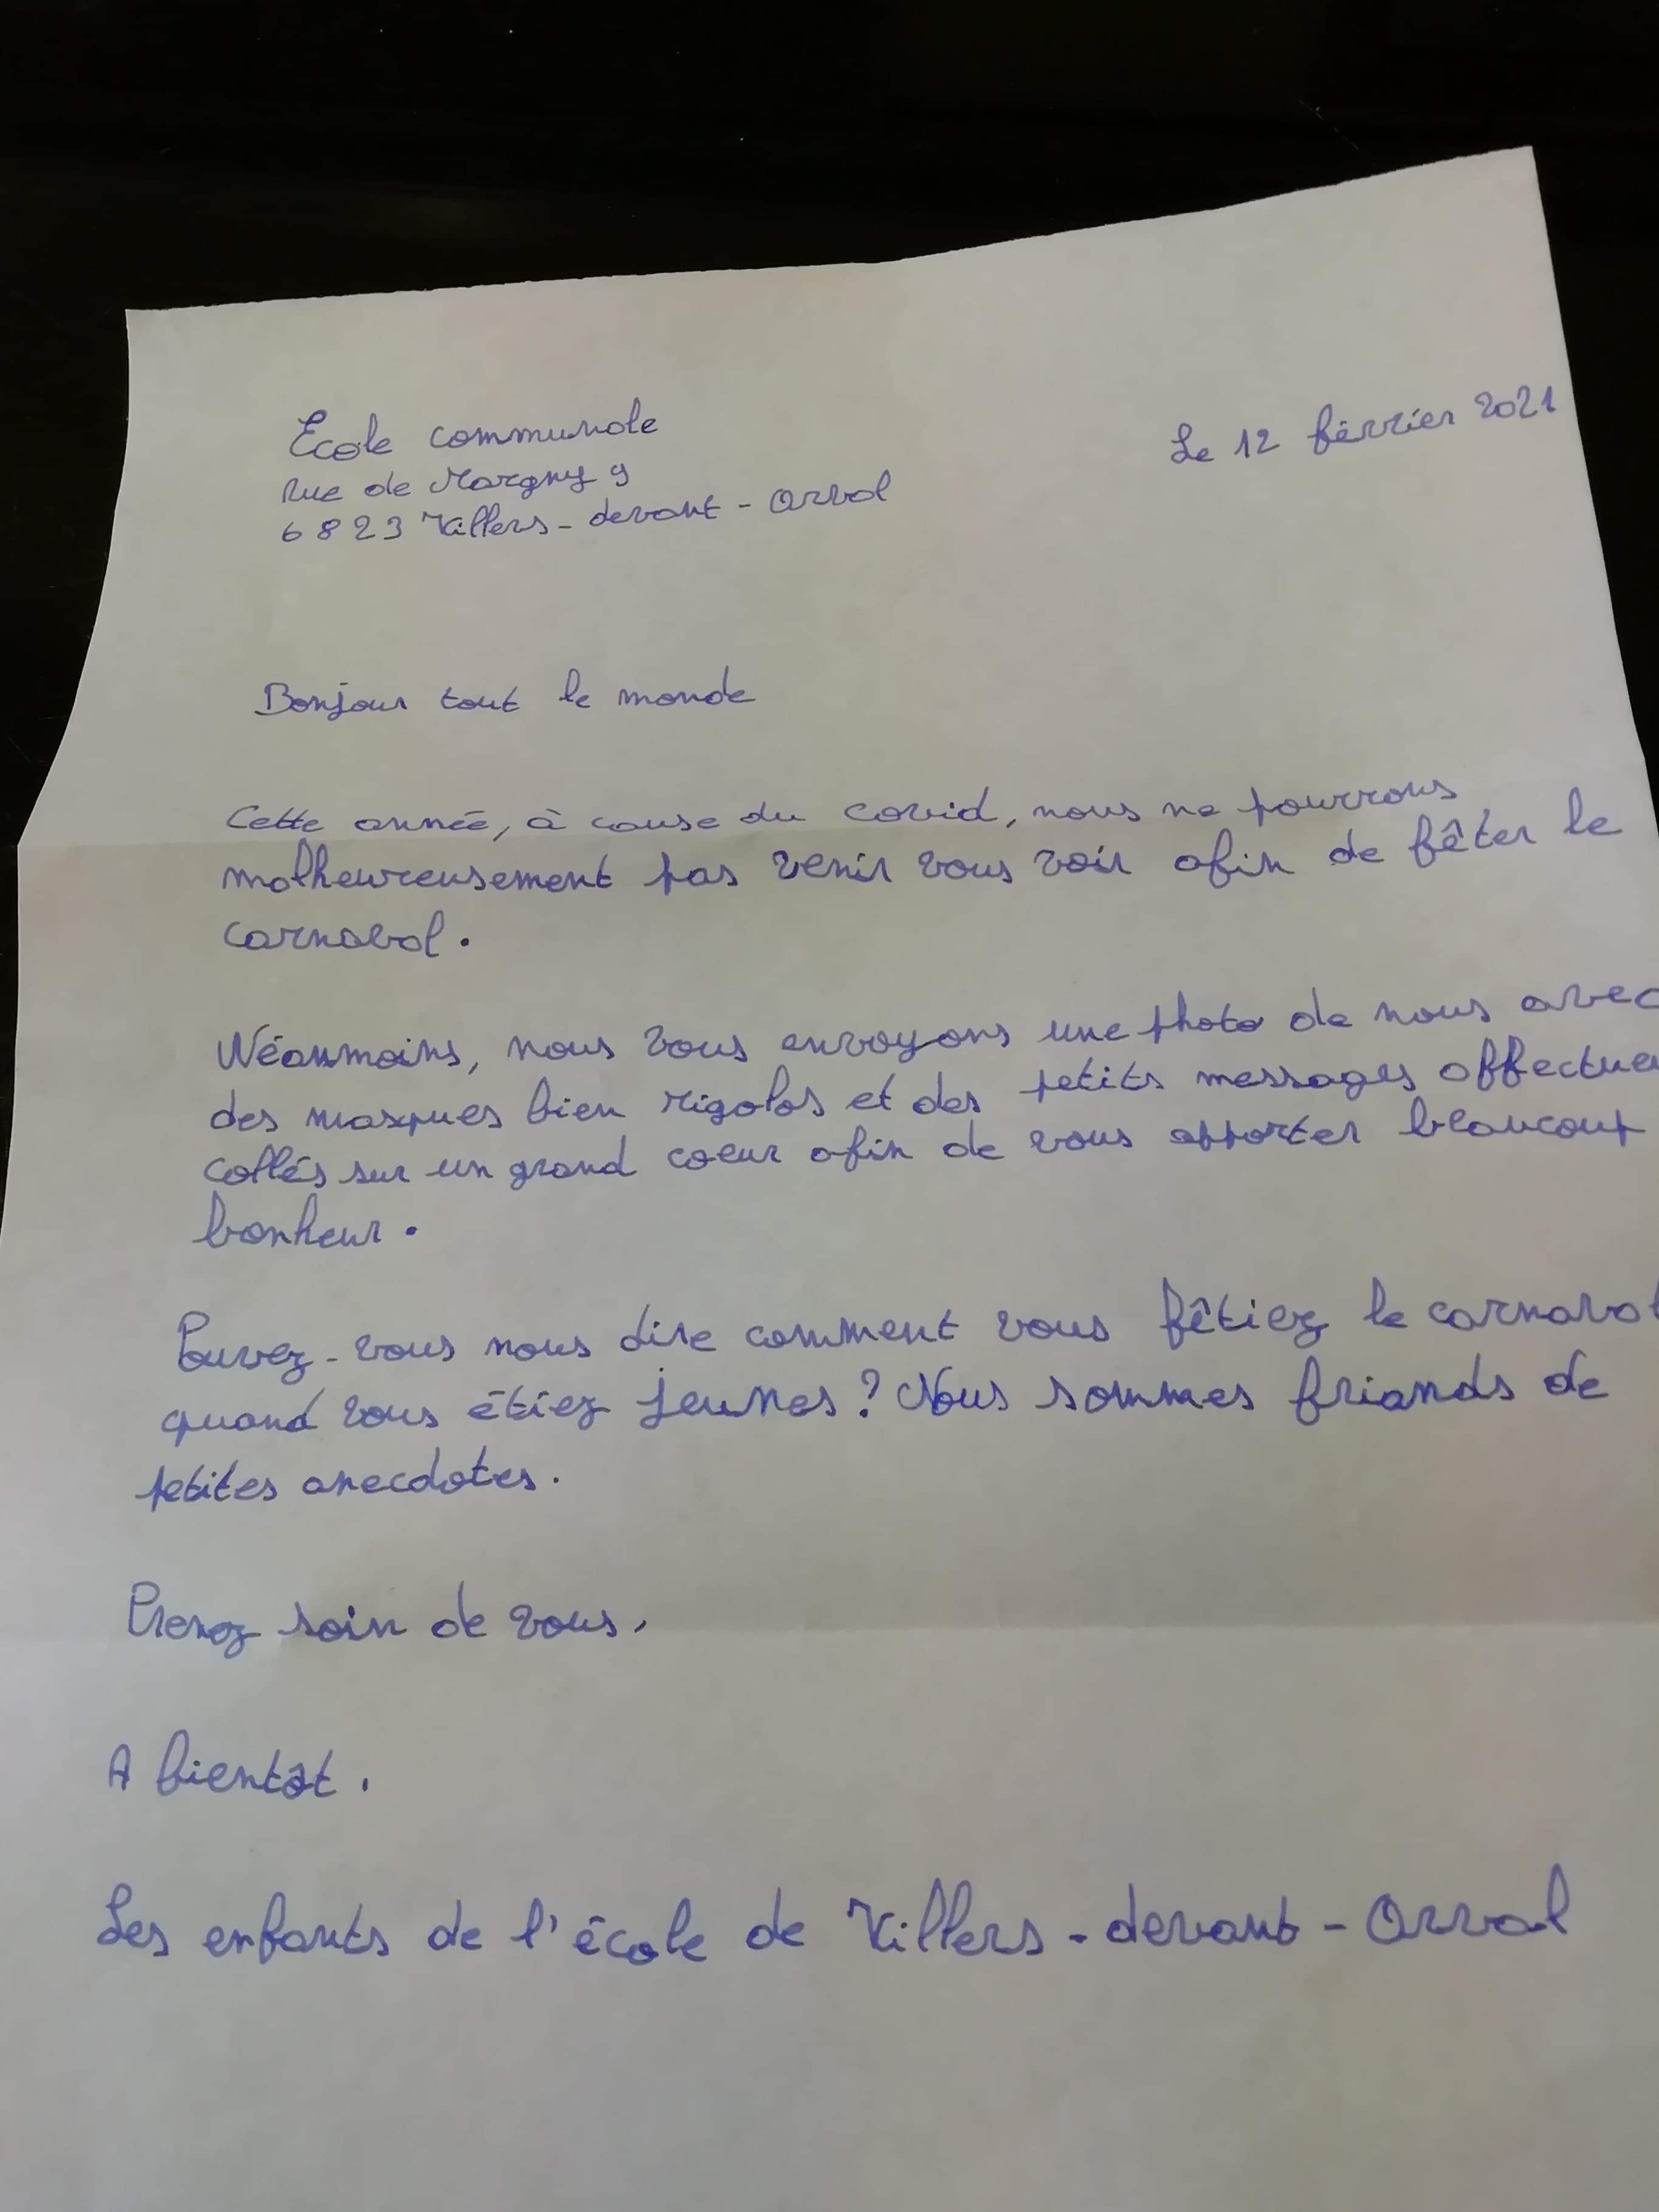 Ecole communale
Le 12 février 2021
Rue de Margny 9
6823 Villers-devant-Orval
Bonjour tout le monde
Cette année, à cause du covid, nous ne pourrons
malheureusement pas venir vous voir afin de fêter le
carnaval.
Néanmoins, nous vous envoyons une photo de nous avec
des masques bien rigolos et des petits messages affectue
collés sur un grand coeur afin de vous apporter beaucoup
bonheur.
Pouvez-vous nous dire comment vous fêtiez le carnaval
quand vous étiez jeunes ? Nous sommes friands de
petites anecdotes.
Prenez soin de vous.
A bientôt.
Les enfants de l'école de Villers-devant-Orval